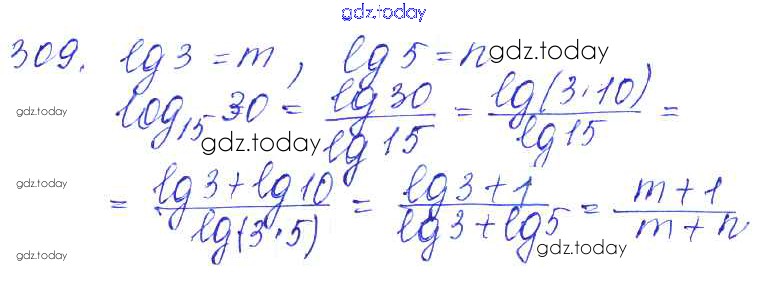 gdz.today
309. lg 3 = m, lg 5 = n gdz.today
gdz.today log₁₅ 30 = lg 30 / lg 15 = lg(3·10) / lg 15 =
gdz.today
gdz.today = (lg 3 + lg 10) / lg(3·5) = (lg 3 + 1) / (lg 3 + lg 5) = (m + 1) / (m + n)
gdz.today gdz.today